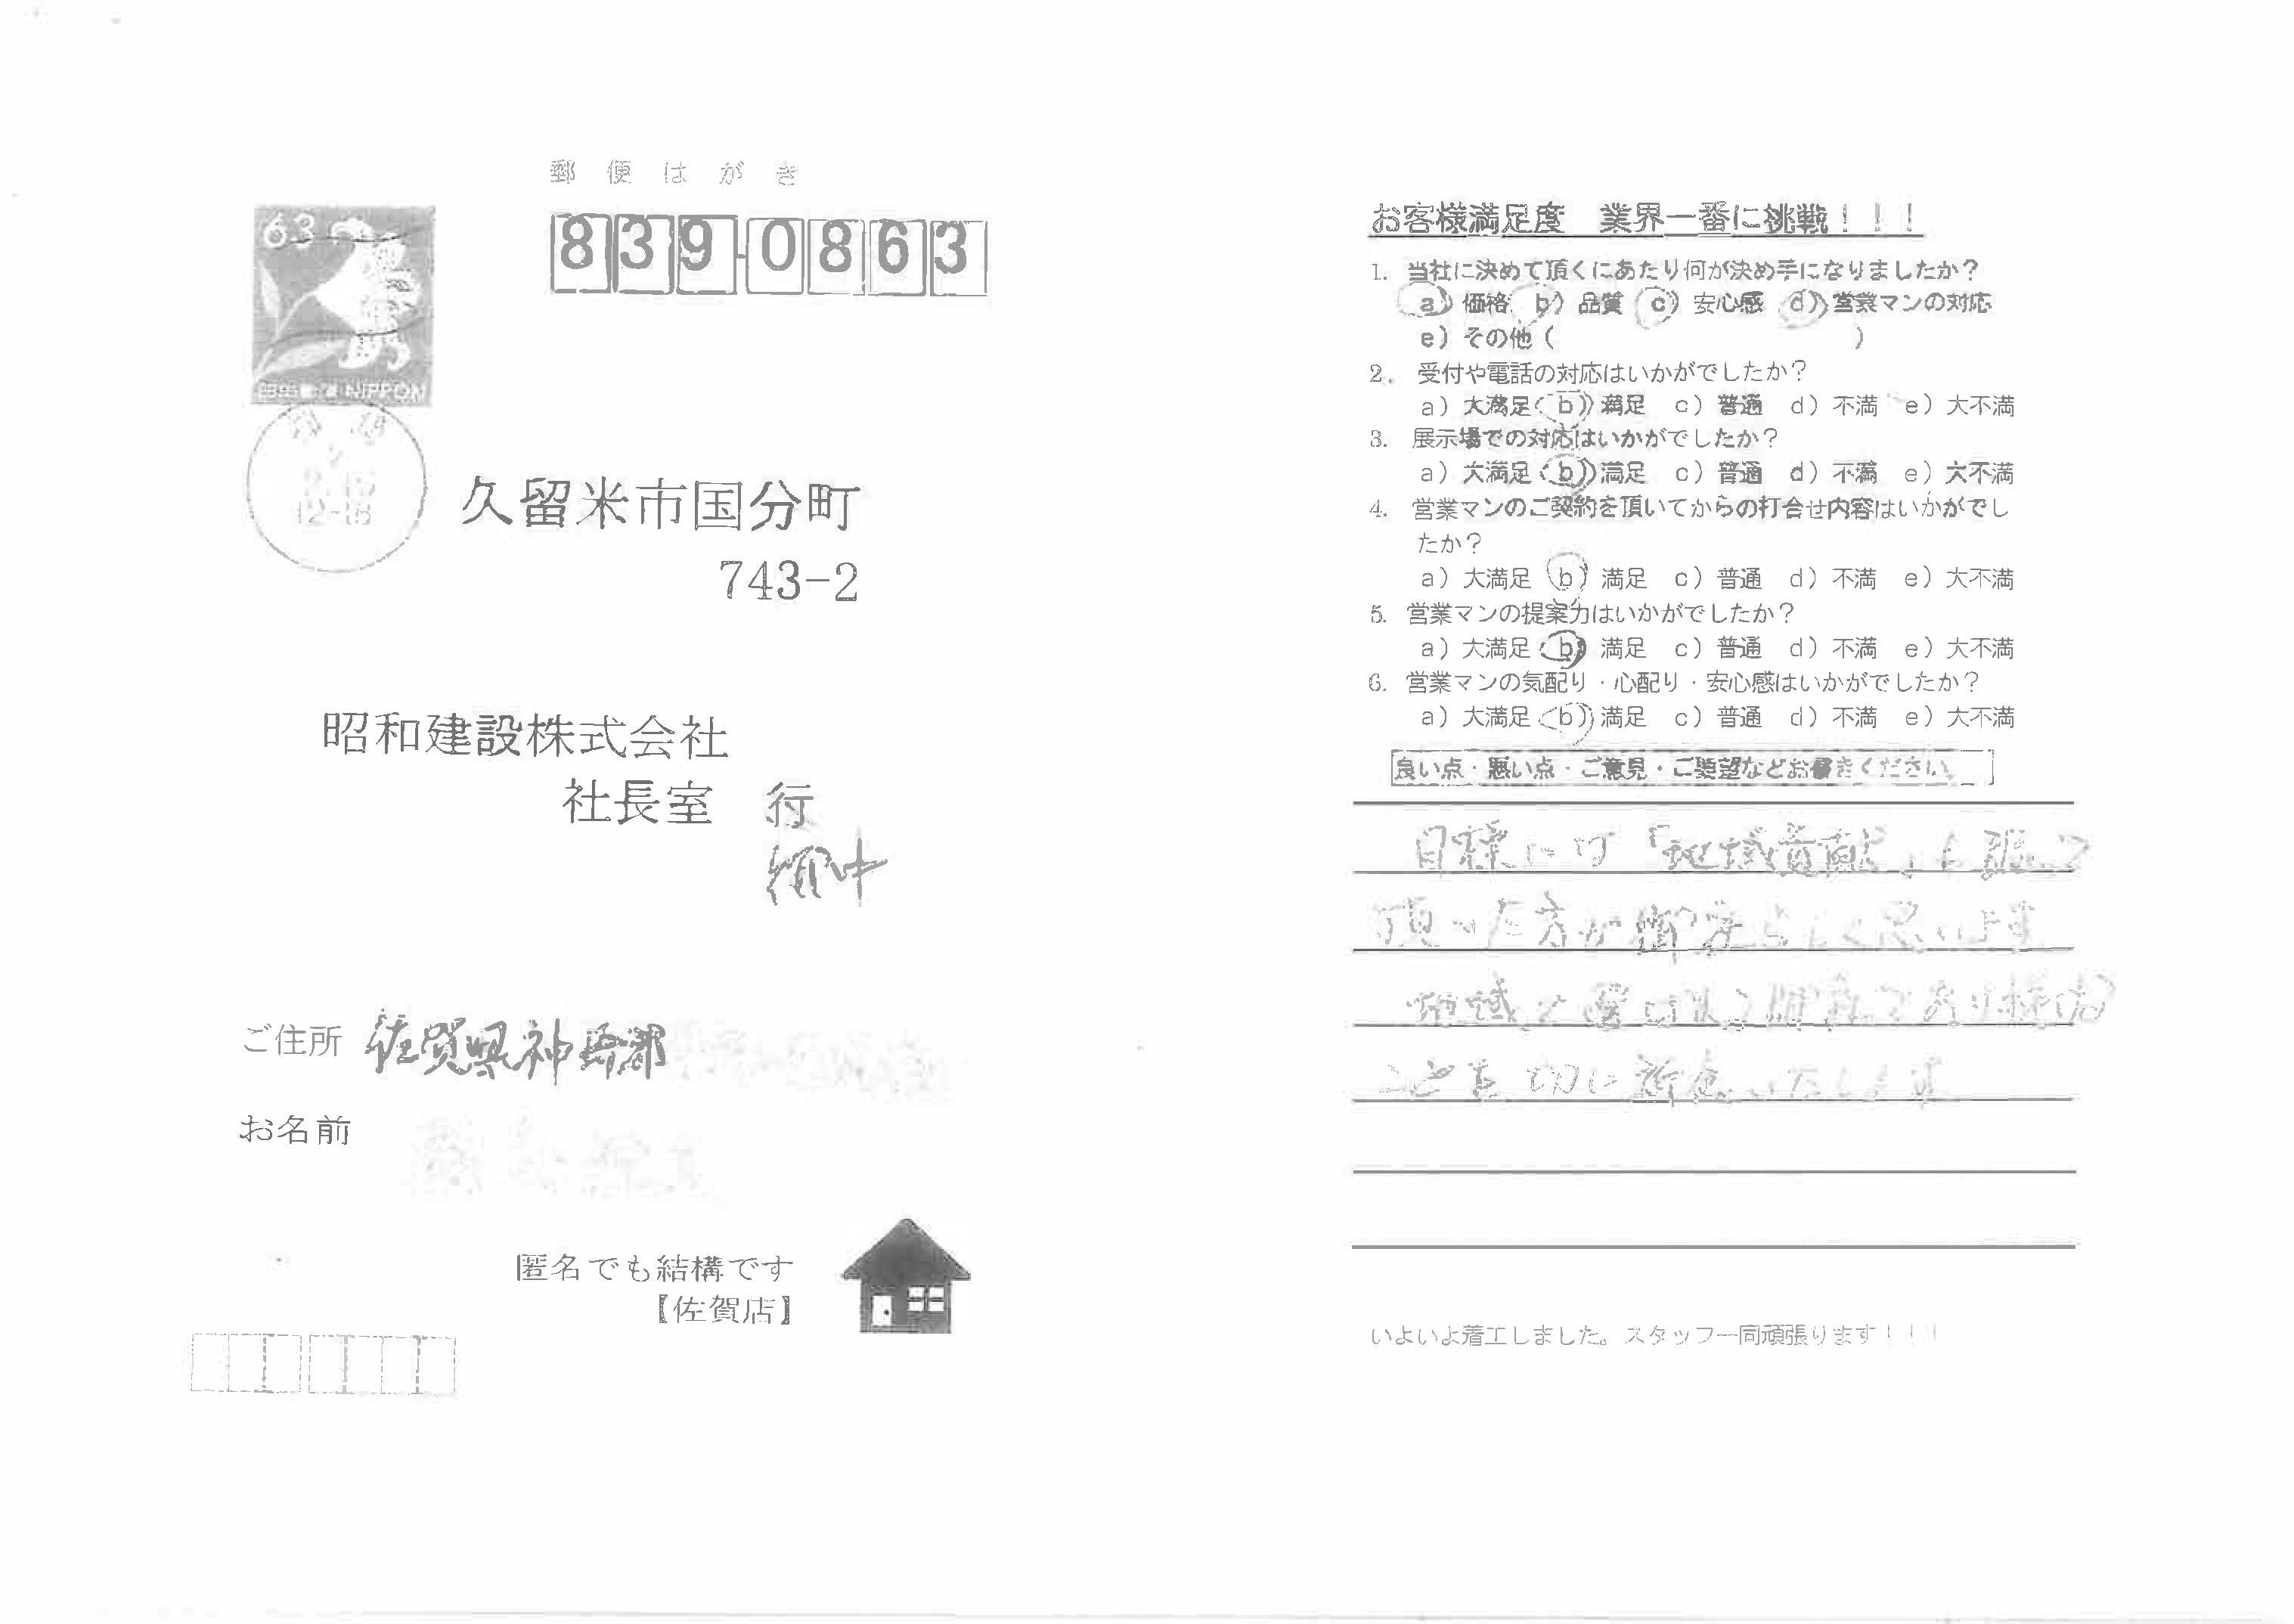 郵便はがき
63
NIPPON
839-0863
12-18
久留米市国分町
743-2
昭和建設株式会社
社長室 行
御中
ご住所 佐賀県神埼郡
お名前
匿名でも結構です
【佐賀店】
お客様満足度 業界一番に挑戦！！！
1. 当社に決めて頂くにあたり何が決め手になりましたか？
a）価格 b）品質 c）安心感 d）営業マンの対応
e）その他（ ）
2. 受付や電話の対応はいかがでしたか？
a）大満足 b）満足 c）普通 d）不満 e）大不満
3. 展示場での対応はいかがでしたか？
a）大満足 b）満足 c）普通 d）不満 e）大不満
4. 営業マンのご契約を頂いてからの打合せ内容はいかがでし
たか？
a）大満足 b）満足 c）普通 d）不満 e）大不満
5. 営業マンの提案力はいかがでしたか？
a）大満足 b）満足 c）普通 d）不満 e）大不満
6. 営業マンの気配り・心配り・安心感はいかがでしたか？
a）大満足 b）満足 c）普通 d）不満 e）大不満
良い点・悪い点・ご意見・ご要望などお書きください
目標には「地域貢献」も謳って
頂った方が 思います
地域に
ことを切に祈念いたします
いよいよ着工しました。スタッフ一同頑張ります！！！